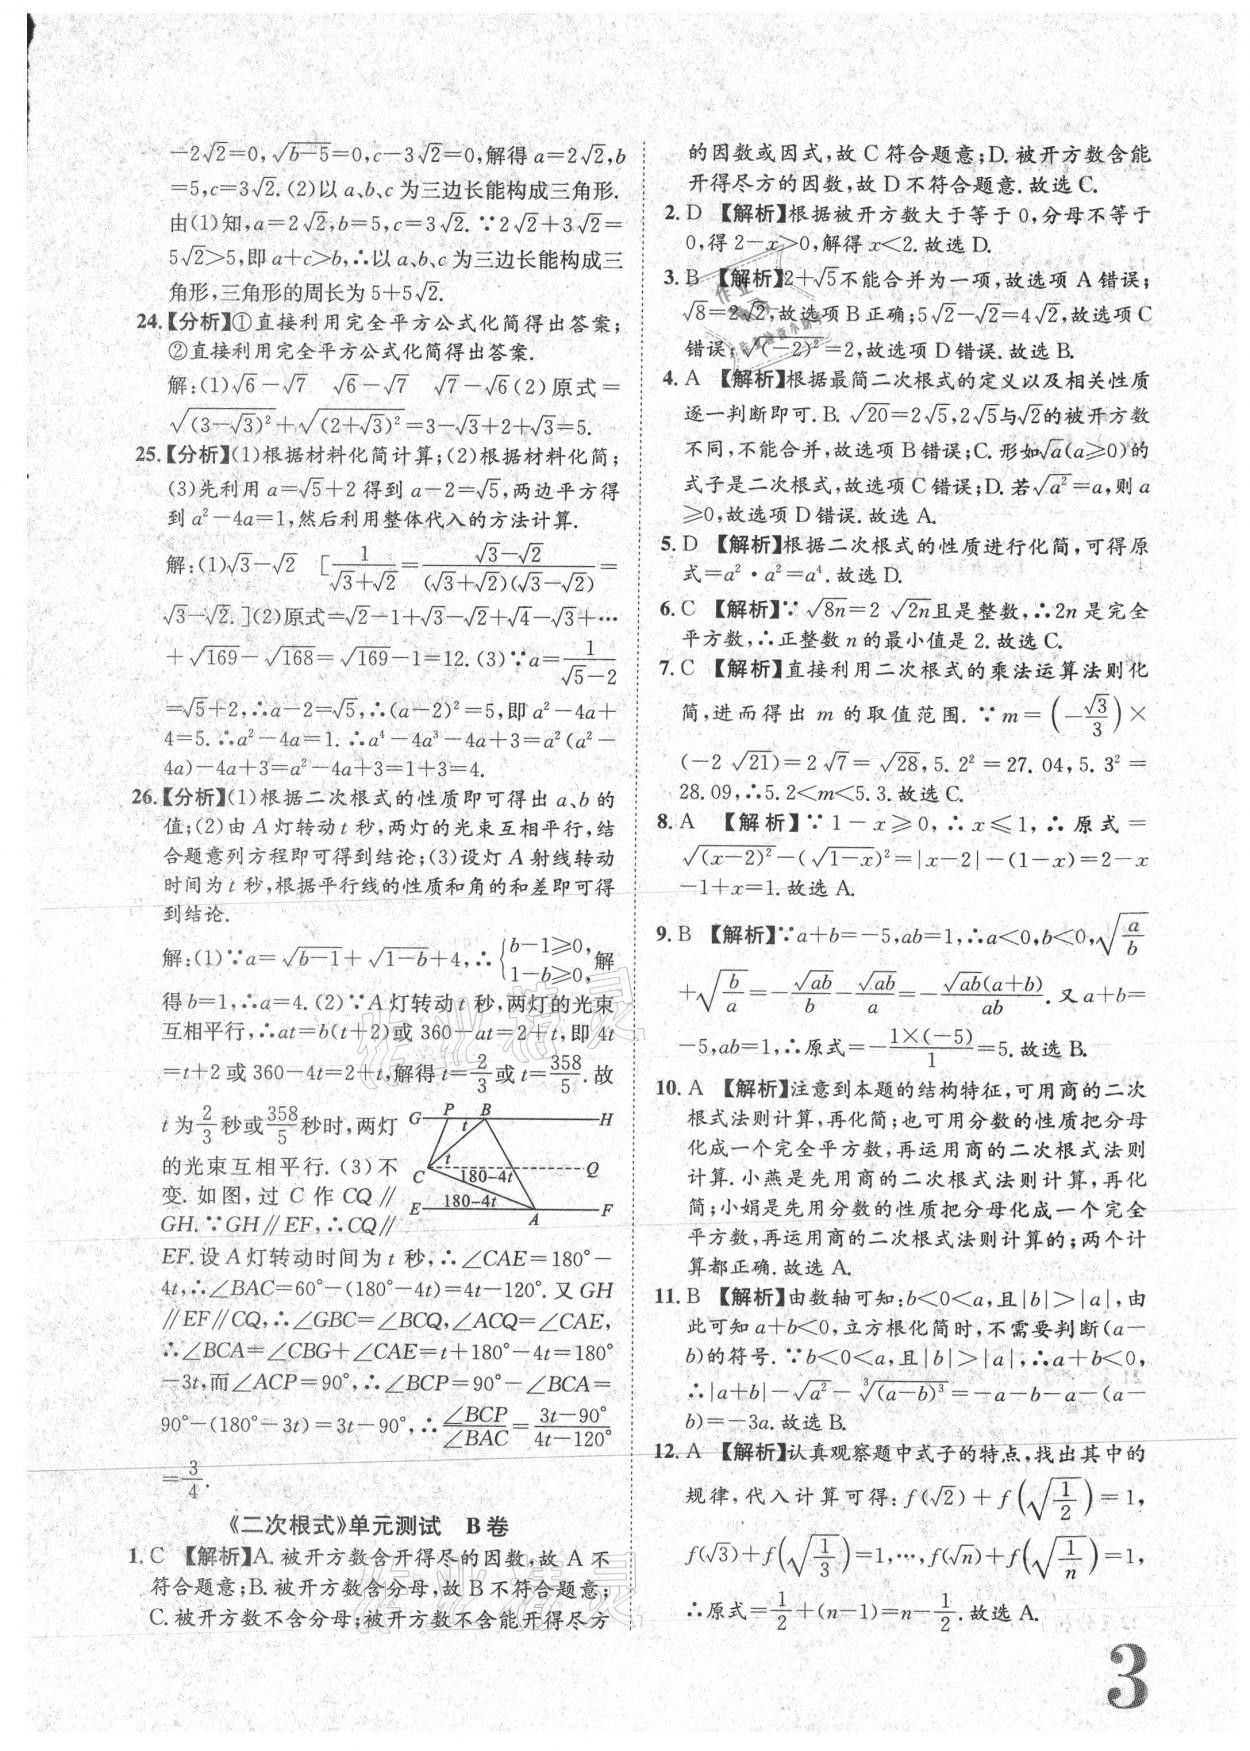 -2√2=0,√(b-5)=0,c-3√2=0,解得a=2√2,b
=5,c=3√2.(2)以a、b、c为三边长能构成三角形.
由(1)知,a=2√2,b=5,c=3√2.∵2√2+3√2=
5√2>5,即a+c>b,∴以a、b、c为三边长能构成三
角形,三角形的周长为5+5√2.
24.【分析】①直接利用完全平方公式化简得出答案;
②直接利用完全平方公式化简得出答案.
解:(1)√6-√7 √6-√7 √7-√6(2)原式=
√((3-√3)²)+√((2+√3)²)=3-√3+2+√3=5.
25.【分析】(1)根据材料化简计算;(2)根据材料化简;
(3)先利用a=√5+2得到a-2=√5,两边平方得
到a²-4a=1,然后利用整体代入的方法计算.
解:(1)√3-√2 [1/(√3+√2)=(√3-√2)/((√3+√2)(√3-√2))=
√3-√2.](2)原式=√2-1+√3-√2+√4-√3+…
+√169-√168=√169-1=12.(3)∵a=1/(√5-2)
=√5+2,∴a-2=√5,∴(a-2)²=5,即a²-4a+
4=5.∴a²-4a=1.∴a⁴-4a³-4a+3=a²(a²-
4a)-4a+3=a²-4a+3=1+3=4.
26.【分析】(1)根据二次根式的性质即可得出a、b的
值;(2)由A灯转动t秒,两灯的光束互相平行,结
合题意列方程即可得到结论;(3)设灯A射线转动
时间为t秒,根据平行线的性质和角的和差即可得
到结论.
解:(1)∵a=√(b-1)+√(1-b)+4,∴{b-1≥0,1-b≥0,解
得b=1,∴a=4.(2)∵A灯转动t秒,两灯的光束
互相平行,∴at=b(t+2)或360-at=2+t,即4t
=t+2或360-4t=2+t,解得t=2/3或t=358/5.故
t为2/3秒或358/5秒时,两灯
的光束互相平行.(3)不
变.如图,过C作CQ∥
GH.∵GH∥EF,∴CQ∥
G P B H
t
t
C 180-4t Q
E 180-4t A F
EF.设A灯转动时间为t秒,∴∠CAE=180°-
4t,∴∠BAC=60°-(180°-4t)=4t-120°.又GH
∥EF∥CQ,∴∠GBC=∠BCQ,∠ACQ=∠CAE,
∴∠BCA=∠CBG+∠CAE=t+180°-4t=180°
-3t,而∠ACP=90°,∴∠BCP=90°-∠BCA=
90°-(180°-3t)=3t-90°,∴∠BCP/∠BAC=(3t-90°)/(4t-120°)
=3/4.
《二次根式》单元测试 B卷
1.C 【解析】A.被开方数含开得尽的因数,故A不
符合题意;B.被开方数含分母,故B不符合题意;
C.被开方数不含分母;被开方数不含能开得尽方
的因数或因式,故C符合题意;D.被开方数含能
开得尽方的因数,故D不符合题意.故选C.
2.D 【解析】根据被开方数大于等于0,分母不等于
0,得2-x>0,解得x<2.故选D.
3.B 【解析】2+√5不能合并为一项,故选项A错误;
√8=2√2,故选项B正确;5√2-√2=4√2,故选项C
错误;√((-2)²)=2,故选项D错误.故选B.
4.A 【解析】根据最简二次根式的定义以及相关性质
逐一判断即可.B.√20=2√5,2√5与√2的被开方数
不同,不能合并,故选项B错误;C.形如√a(a≥0)的
式子是二次根式,故选项C错误;D.若√(a²)=a,则a
≥0,故选项D错误.故选A.
5.D 【解析】根据二次根式的性质进行化简,可得原
式=a²·a²=a⁴.故选D.
6.C 【解析】∵√(8n)=2√(2n)且是整数,∴2n是完全
平方数,∴正整数n的最小值是2.故选C.
7.C 【解析】直接利用二次根式的乘法运算法则化
简,进而得出m的取值范围.∵m=(-√3/3)×
(-2√21)=2√7=√28,5.2²=27.04,5.3²=
28.09,∴5.2<m<5.3.故选C.
8.A 【解析】∵1-x≥0,∴x≤1,∴原式=
√((x-2)²)-(√(1-x))²=|x-2|-(1-x)=2-x
-1+x=1.故选A.
9.B 【解析】∵a+b=-5,ab=1,∴a<0,b<0,√(a/b)
+√(b/a)=-√(ab)/b-√(ab)/a=-√(ab)(a+b)/ab.又a+b=
-5,ab=1,∴原式=-1×(-5)/1=5.故选B.
10.A 【解析】注意到本题的结构特征,可用商的二次
根式法则计算,再化简;也可用分数的性质把分母
化成一个完全平方数,再运用商的二次根式法则
计算.小燕是先用商的二次根式法则计算,再化
简;小娟是先用分数的性质把分母化成一个完全
平方数,再运用商的二次根式法则计算的;两个计
算都正确.故选A.
11.B 【解析】由数轴可知:b<0<a,且|b|>|a|,由
此可知a+b<0,立方根化简时,不需要判断(a-
b)的符号.∵b<0<a,且|b|>|a|,∴a+b<0,
∴|a+b|-√(a²)-³√((a-b)³)=-a-b-a-(a-
b)=-3a.故选B.
12.A 【解析】认真观察题中式子的特点,找出其中的
规律,代入计算可得:f(√2)+f(√(1/2))=1,
f(√3)+f(√(1/3))=1,…,f(√n)+f(√(1/n))=1,
∴原式=1/2+(n-1)=n-1/2.故选A.
3
作业精灵
作业精灵